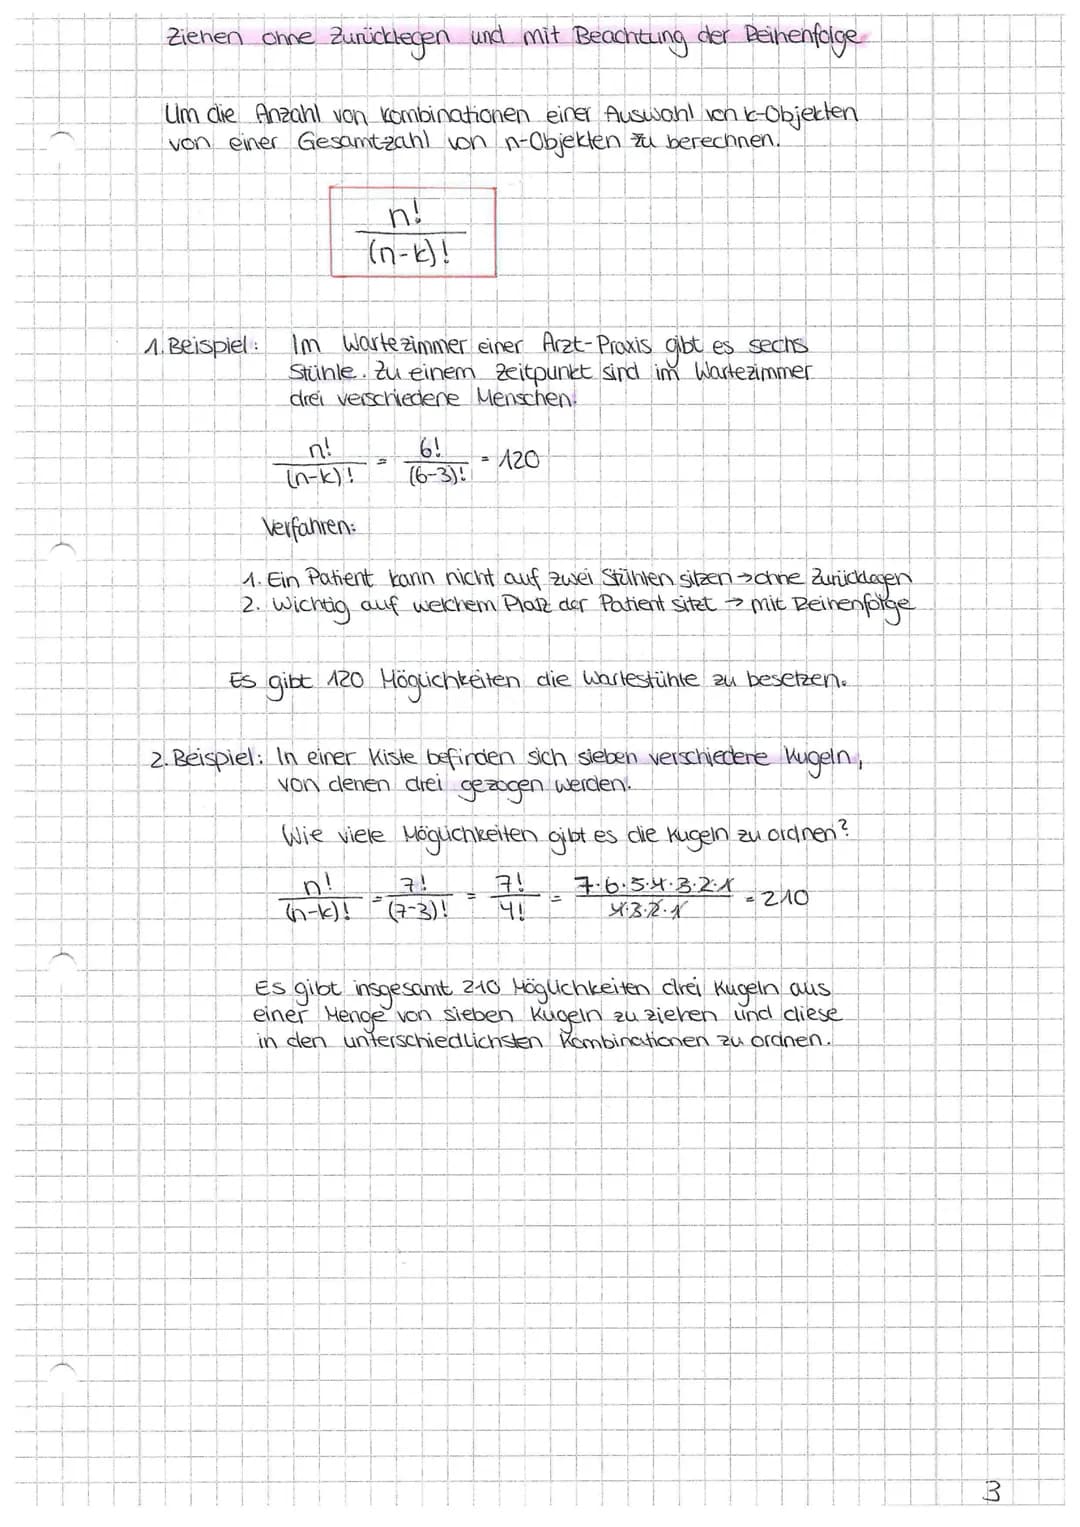 Ziehen ohne Zurücklegen und mit Beachtung der Reihenfolge
Um die Anzahl von Kombinationen einer Auswahl von k-Objekten
von einer Gesamtzahl von n-Objekten zu berechnen.
n!
(n-k)!
1. Beispiel: Im Wartezimmer einer Arzt-Praxis gibt es sechs
Stühle. Zu einem Zeitpunkt sind im Wartezimmer
drei verschiedene Menschen.
n!/(n-k)! = 6!/(6-3)! = 120
Verfahren:
1. Ein Patient kann nicht auf zwei Stühlen sitzen → ohne Zurücklegen
2. Wichtig auf welchem Platz der Patient sitzt → mit Reihenfolge
Es gibt 120 Möglichkeiten die Wartestühle zu besetzen.
2. Beispiel: In einer Kiste befinden sich sieben verschiedene Kugeln,
von denen drei gezogen werden.
Wie viele Möglichkeiten gibt es die Kugeln zu ordnen?
n!/(n-k)! = 7!/(7-3)! = 7!/4! = 7·6·5·4·3·2·1/4·3·2·1 = 210
Es gibt insgesamt 210 Möglichkeiten drei Kugeln aus
einer Menge von sieben Kugeln zu ziehen und diese
in den unterschiedlichsten Kombinationen zu ordnen.
3